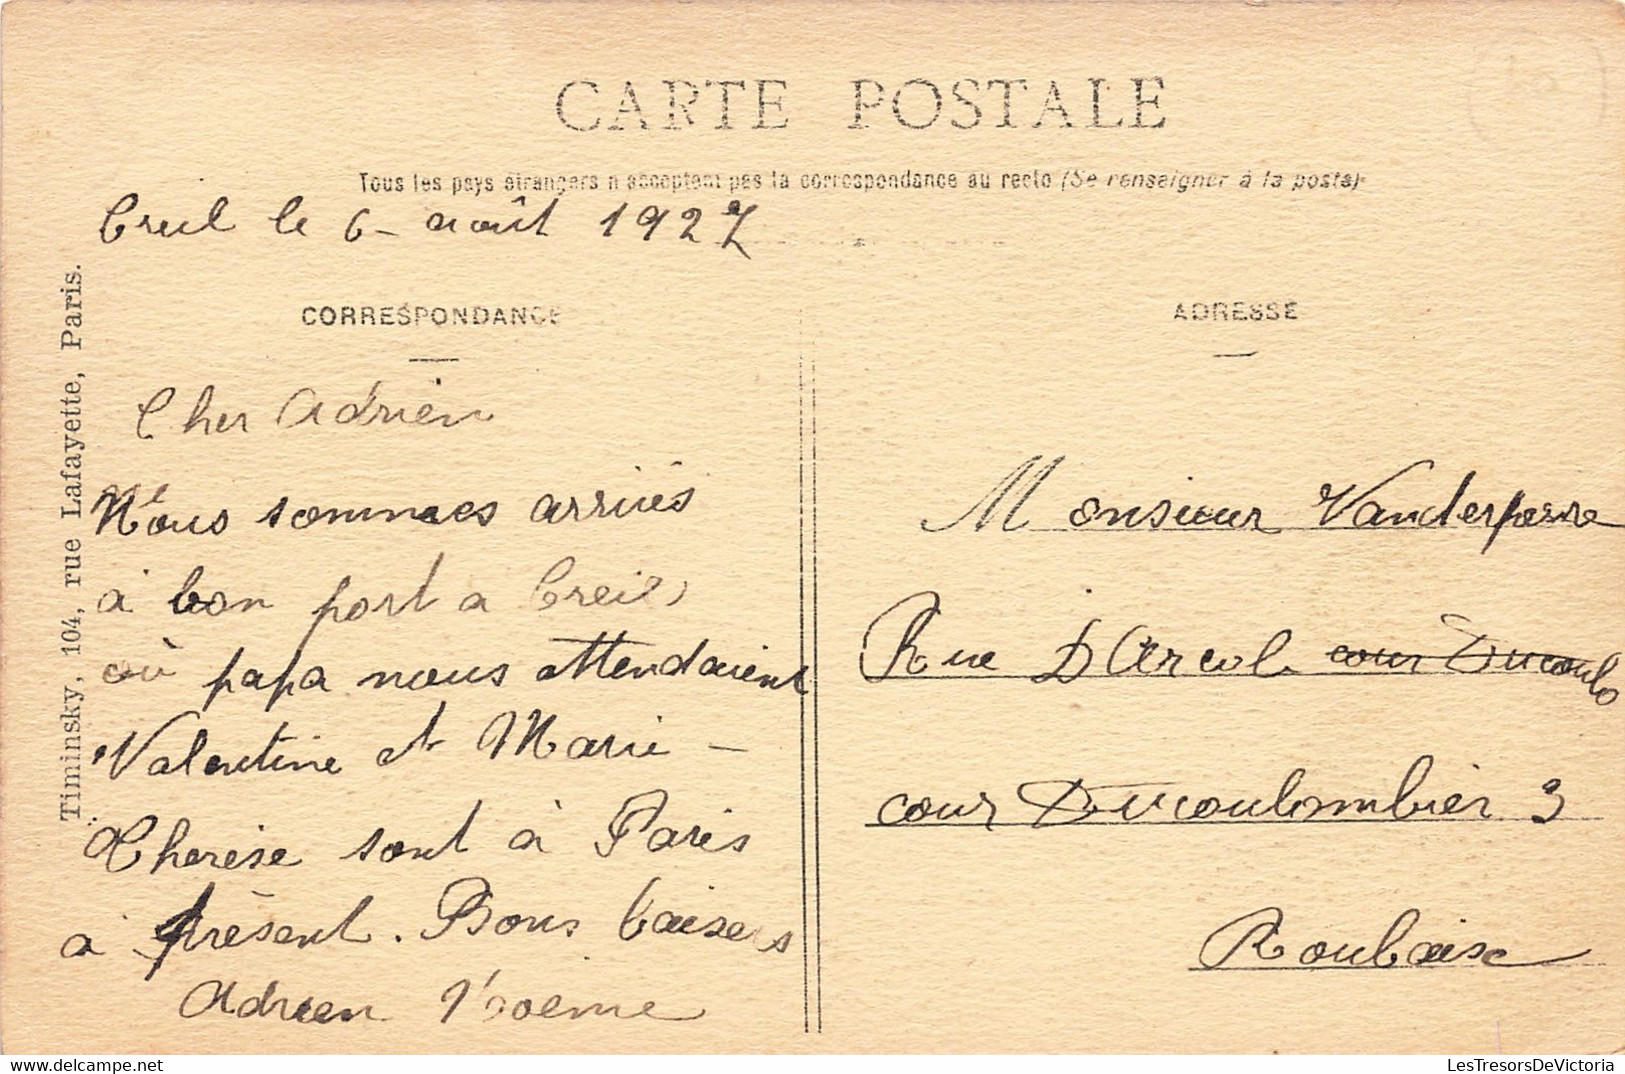 CARTE POSTALE
Tous les pays étrangers n'acceptent pas la correspondance au recto (Se renseigner à la poste)
Creil le 6 - août 1927
CORRESPONDANCE
ADRESSE
Timinsky, 104, rue Lafayette, Paris.
Cher Adrien
Nous sommes arrivés
à bon port a Creil,
où papa nous attendaient
Valentine et Marie -
Therèse sont à Paris
à présent. Bons baisers
Adrien Noémie
Monsieur
Rue D'Arcol cour Ducoulo
cour Ducoulombier 3
Roubaix
LesTresorsDeVictoria